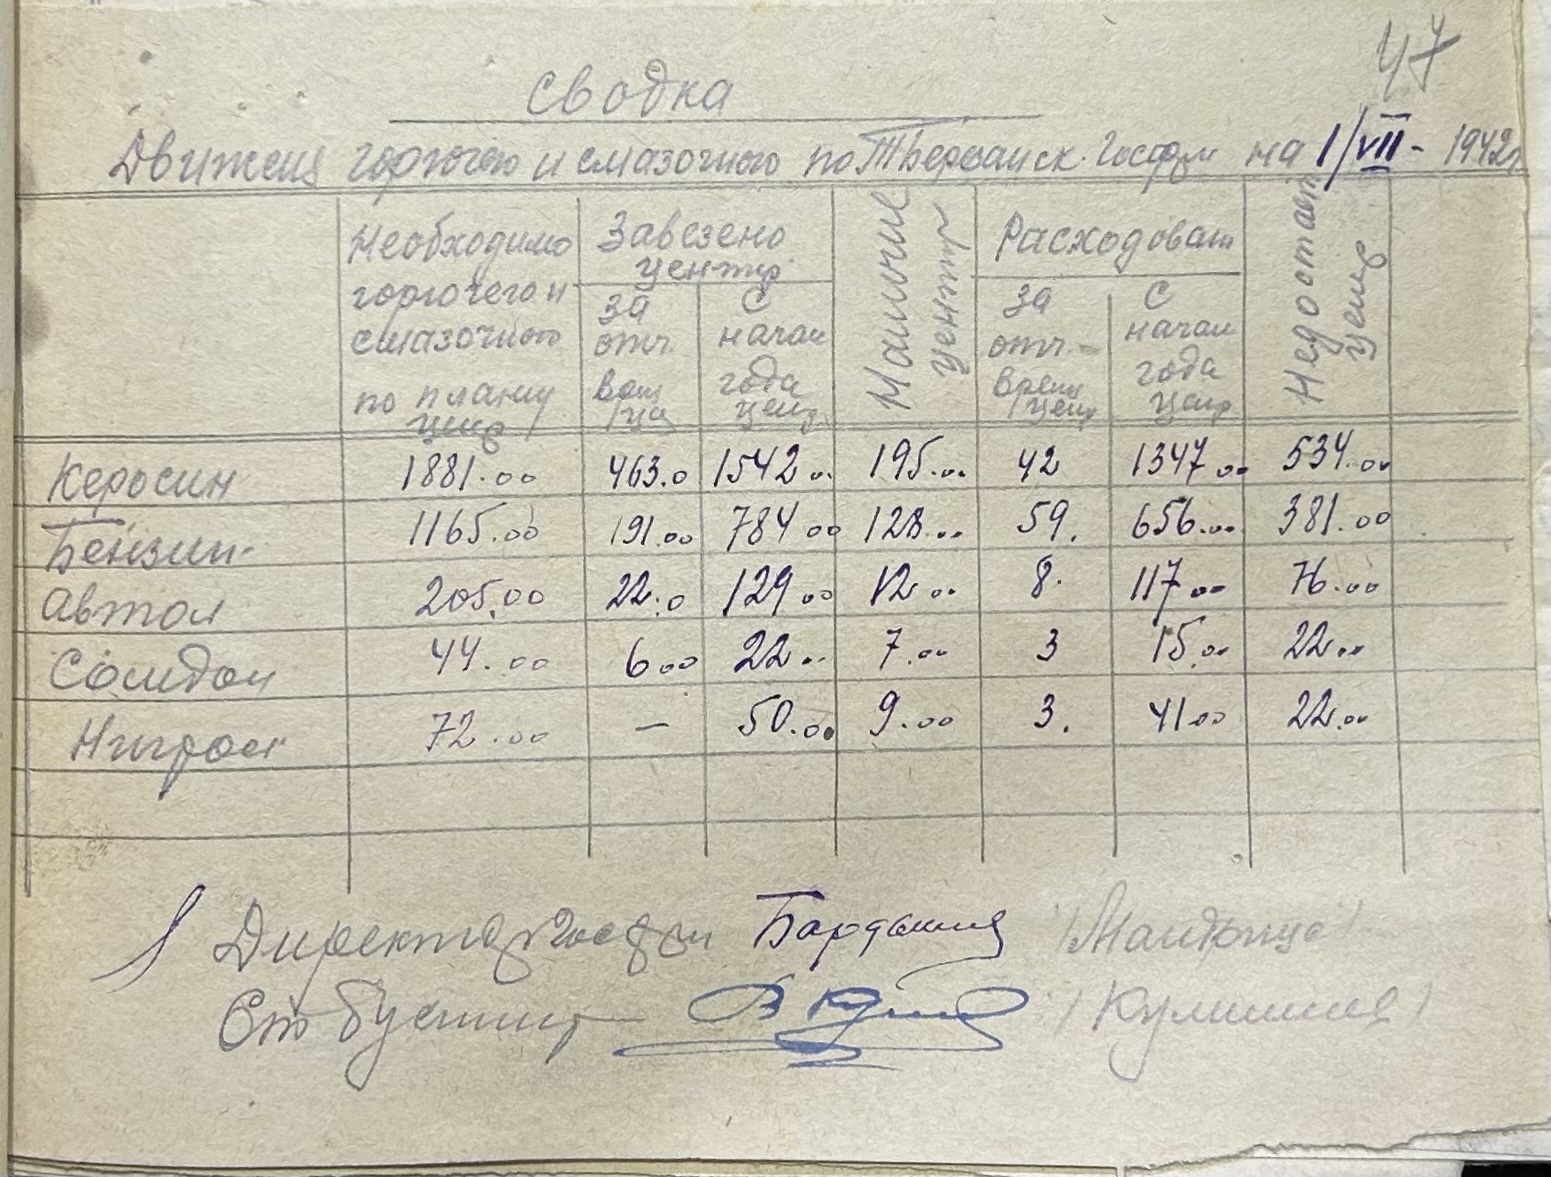 47
Сводка
Движения горючего и смазочного по Госфзм на 1/VII - 1942г
Необходимо горючего и смазочного по плану центр
Завезено центр
За отч. врем /цн
С начал года центр
Наличие центр
Расходован
За отч. - врем /центр
С начал года центр
Недостает центр
Керосин 1881.00 463.0 1542.. 195... 42 1347.00 534.00
Бензин 1165.00 191.00 784 00 128... 59. 656.00 381.00
Автол 205.00 22.0 129 00 12 .. 8. 117 00 76.00
Солидол 44.00 6 00 22.. 7.00 3 15.00 22.00
Нигрол 72.00 — 50.00 9.00 3. 41 00 22.00
Директор
Ст бухгалтер